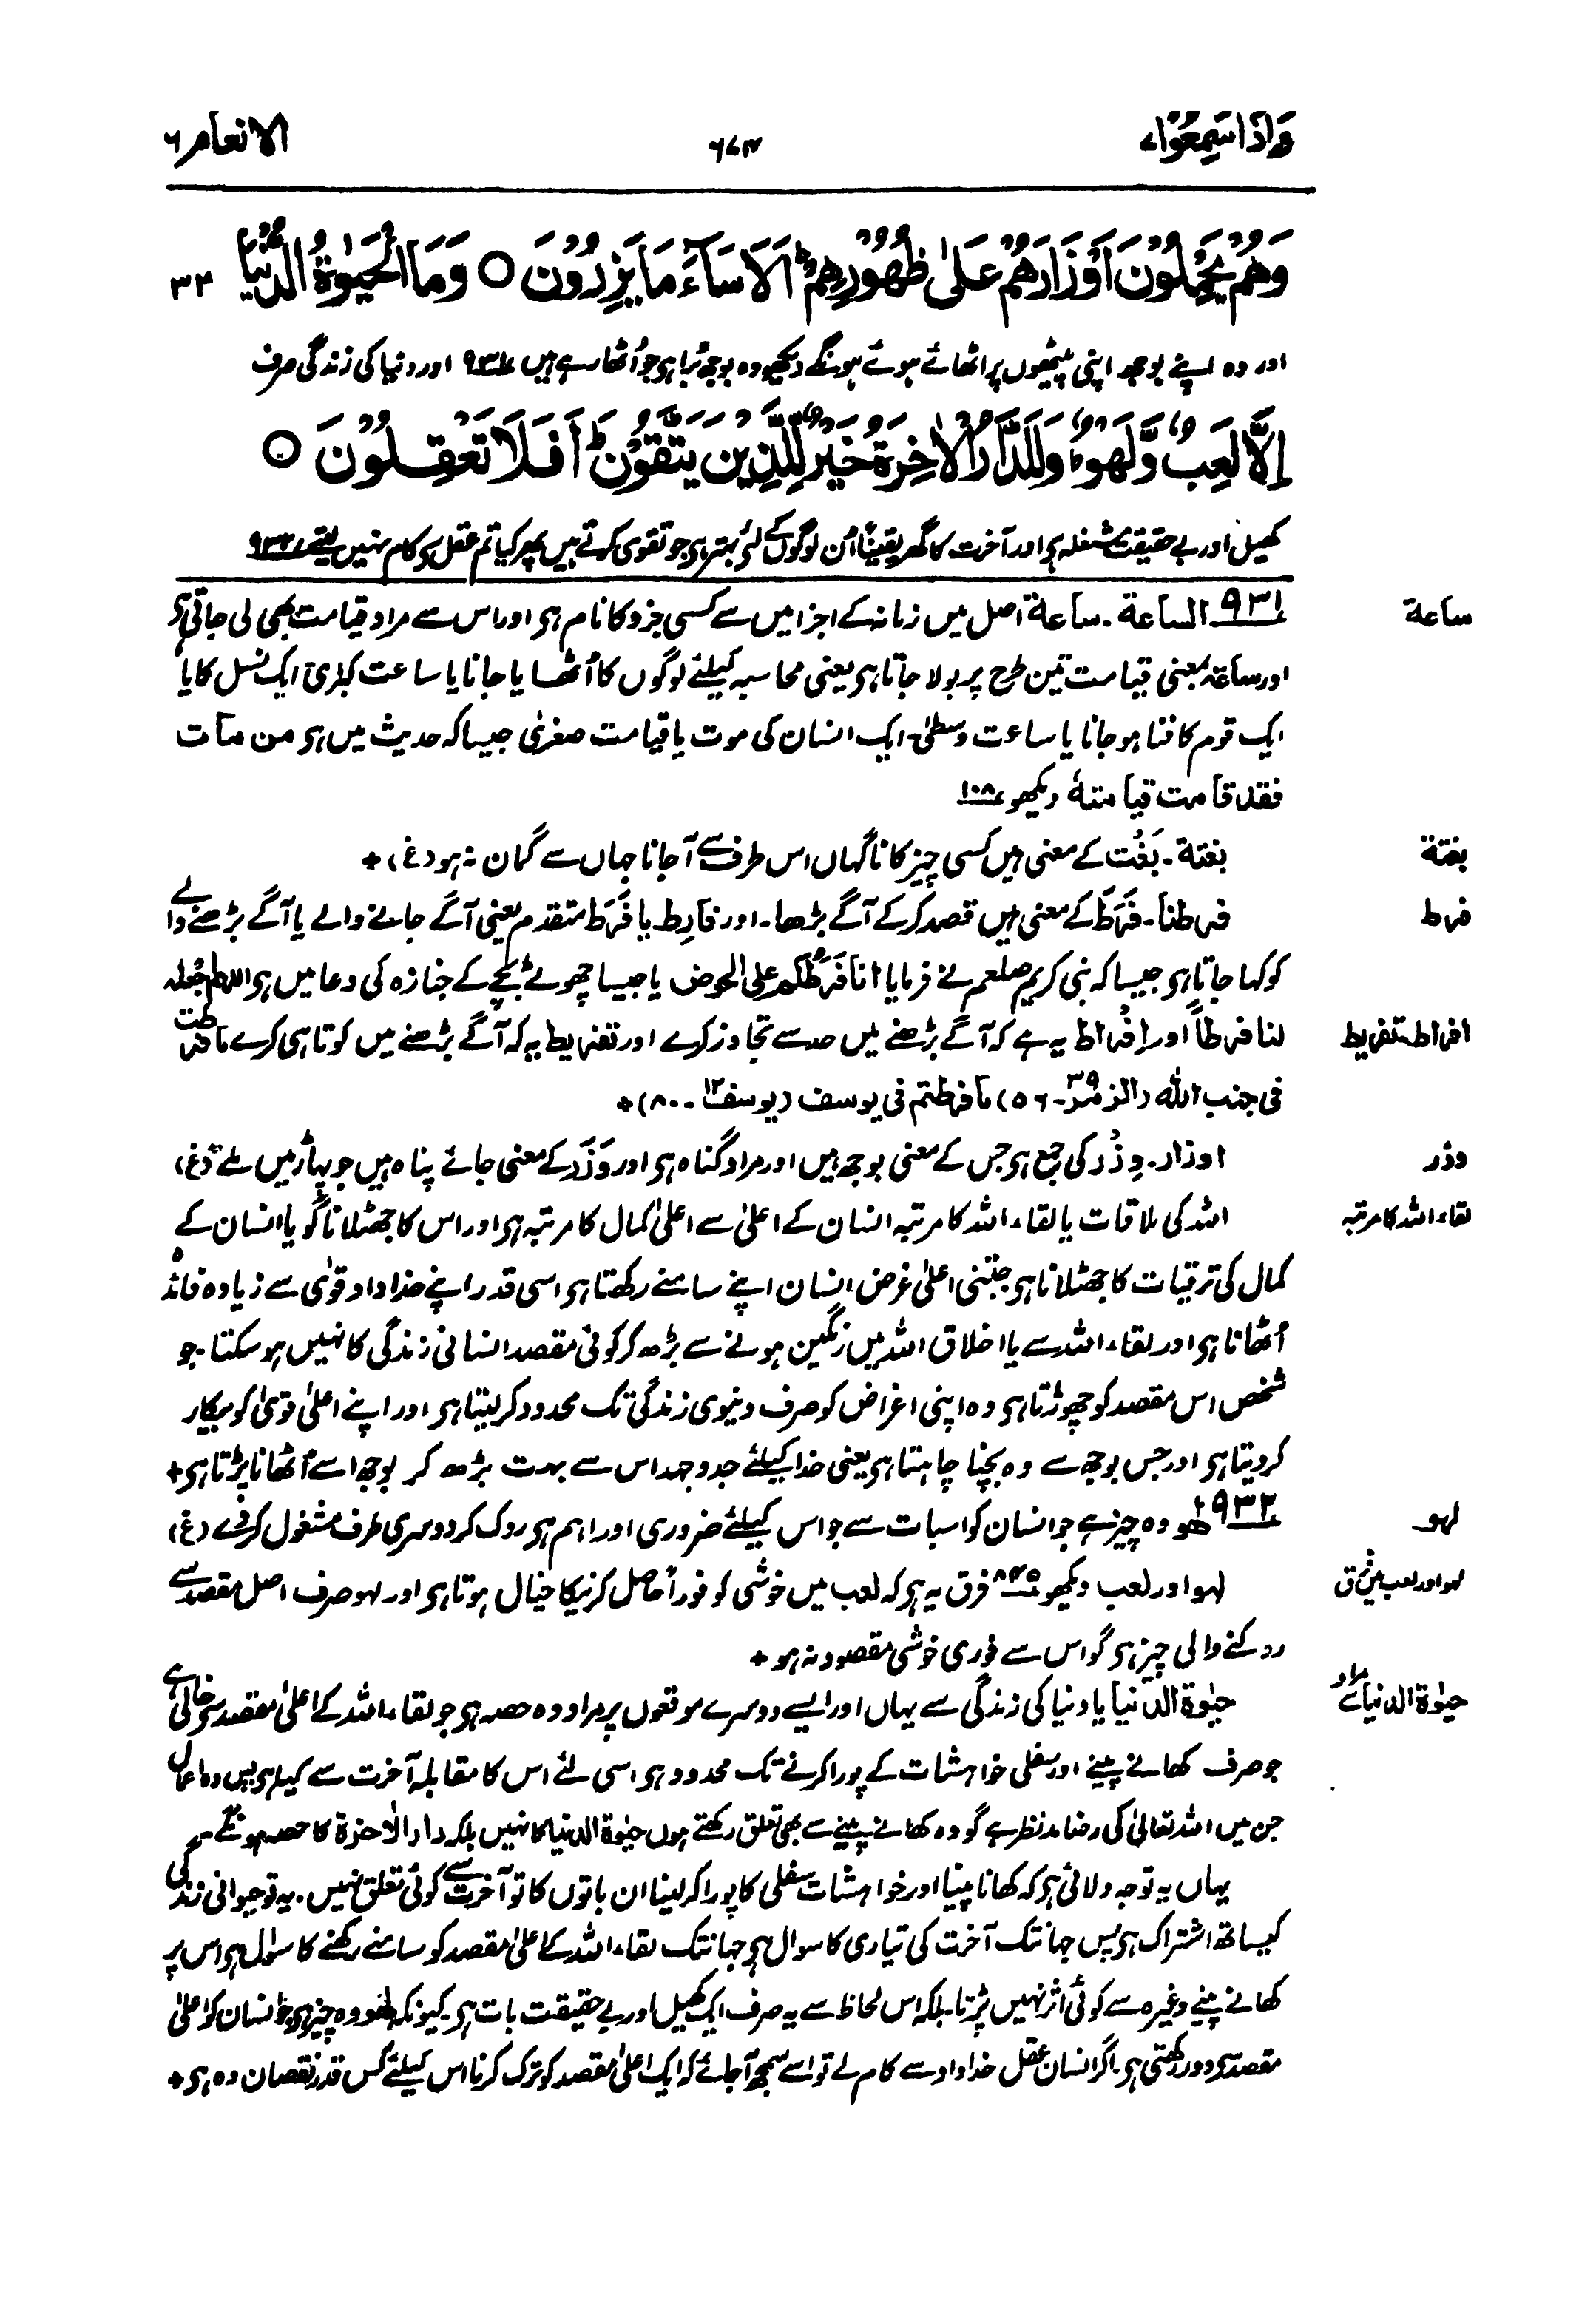 وَاِذَا سَمِعُوْا ۷
۶۷۴
الانعام ۶
وَهُمْ يَحْمِلُوْنَ اَوْزَارَهُمْ عَلٰى ظُهُوْرِهِمْ ؕ اَلَا سَآءَ مَا يَزِرُوْنَ ○ وَمَا الْحَيٰوةُ الدُّنْيَآ ۳۲
اور وہ اپنے بوجھ اپنی پیٹھوں پر اٹھائے ہوئے ہونگے دیکھو وہ بوجھ بُرا ہی جو اُٹھا رہے ہیں ۹۳۱ اور دنیا کی زندگی صرف
اِلَّا لَعِبٌ وَّلَهْوٌ ؕ وَلَلدَّارُ الْاٰخِرَةُ خَيْرٌ لِّلَّذِيْنَ يَتَّقُوْنَ ؕ اَفَلَا تَعْقِلُوْنَ ○
کھیل اور بے حقیقت مشغلہ ہی اور آخرت کا گھر یقیناً اُن لوگوں کے لئے بہتر ہی جو تقوی کرتے ہیں پھر کیا تم عقل سے کام نہیں لیتے ۹۳۲
ساعة
۹۳۱ الساعة ۔ ساعة اصل میں زمانہ کے اجزا میں سے کسی جزو کا نام ہی اور اس سے مراد قیامت بھی لی جاتی ہی
اور ساعۃ بمعنی قیامت تین طرح پر بولا جاتا ہی یعنی محاسبہ کیلئے لوگوں کا اُٹھایا جانا یا ساعت کبریٰ ایک نسل کا یا
ایک قوم کا فنا ہو جانا یا ساعت وسطیٰ۔ ایک انسان کی موت یا قیامت صغریٰ جیسا کہ حدیث میں ہی من مات
فقد قامت قیامتهٗ دیکھو ۱۰۸
بغتة
بغتة ۔ بَغْت کے معنی ہیں کسی چیز کا ناگہاں اس طرف سے آجانا جہاں سے گمان نہ ہو (غ) +
فرط
فرطنا ۔ فَرَطَ کے معنی ہیں قصد کرکے آگے بڑھا۔ اور فارِط یا فَرَط متقدم یعنی آگے جانے والے یا آگے بڑھنے والے
کو کہا جاتا ہی جیسا کہ نبی کریم صلعم نے فرمایا انا فَرَطُکم علی الحوض یا جیسا چھوٹے بچے کے جنازہ کی دعا میں ہی اللهم اجعله
افراط۔ تفریط
لنا فرطاً اور اِفْراط یہ ہے کہ آگے بڑھنے میں حد سے تجاوز کرے اور تفریط یہ کہ آگے بڑھنے میں کوتاہی کرے ما فرطت
فی جنب اللّٰه (الزمر ۳۹۔ ۵۶) ما فرطتم فی یوسف (یوسف ۱۲ ۔ ۸۰) +
وزر
اوزار۔ وِزْر کی جمع ہی جس کے معنی بوجھ ہیں اور مراد گناہ ہی اور وَزَر کے معنی جائے پناہ ہیں جو پہاڑ میں ملے (غ)
لقاء اللہ کا مرتبہ
اللہ کی ملاقات یا لقاء اللہ کا مرتبہ انسان کے اعلیٰ سے اعلیٰ کمال کا مرتبہ ہی اور اس کا جھٹلانا گویا انسان کے
کمال کی ترقیات کا جھٹلانا ہی جتنی اعلیٰ غرض انسان اپنے سامنے رکھتا ہی اسی قدر اپنے خدا داد قویٰ سے زیادہ فائدہ
اُٹھاتا ہی اور لقاء اللہ سے یا اخلاق اللہ میں رنگین ہونے سے بڑھ کر کوئی مقصد انسانی زندگی کا نہیں ہو سکتا۔ جو
شخص اس مقصد کو چھوڑتا ہی وہ اپنی اغراض کو صرف دنیوی زندگی تک محدود کر لیتا ہی اور اپنے اعلیٰ قویٰ کو بیکار
کر دیتا ہی اور جس بوجھ سے وہ بچنا چاہتا ہی یعنی خدا کیلئے جدوجہد اس سے بہت بڑھ کر بوجھ اسے اُٹھانا پڑتا ہی +
لہو
۹۳۲ لھو وہ چیز ہے جو انسان کو اس بات سے جو اس کیلئے ضروری اور اہم ہی روک کر دوسری طرف مشغول کر دے (غ)
لہو اور لعب میں فرق
لہو اور لعب دیکھو ۸۴۵ فرق یہ ہی کہ لعب میں خوشی کو فوراً حاصل کرنیکا خیال ہوتا ہی اور لہو صرف اصل مقصد سے
روکنے والی چیز ہی گو اس سے فوری خوشی مقصود نہ ہو +
حیٰوة الدنیا سے مراد
حیٰوة الدّنیا یا دنیا کی زندگی سے یہاں اور ایسے دوسرے موقعوں پر مراد وہ حصہ ہی جو لقاء اللہ کے اعلیٰ مقصد سے خالی ہے
جو صرف کھانے پینے اور سفلی خواہشات کے پورا کرنے تک محدود ہی اسی لئے اس کا مقابلہ آخرت سے کیا ہی پس وہ اعمال
جن میں اللہ تعالیٰ کی رضا مدنظر ہے گو وہ کھانے پینے سے بھی تعلق رکھتے ہوں حیٰوة الدنیا کا نہیں بلکہ دار الاٰخرة کا حصہ ہونگے۔
یہاں یہ توجہ دلائی ہی کہ کھانا پینا اور خواہشات سفلی کا پورا کر لینا ان باتوں کا تو آخرت سے کوئی تعلق نہیں۔ یہ تو حیوانی زندگی
کیساتھ اشتراک ہی پس جہانتک آخرت کی تیاری کا سوال ہی جہانتک لقاء اللہ کے اعلیٰ مقصد کو سامنے رکھنے کا سوال ہی اس پر
کھانے پینے وغیرہ سے کوئی اثر نہیں پڑتا۔ بلکہ اس لحاظ سے یہ صرف ایک کھیل اور بے حقیقت بات ہی۔ کیونکہ لھو وہ چیز ہی جو انسان کو اعلیٰ
مقصد سے دور رکھتی ہی۔ اگر انسان عقل خداداد سے کام لے تو اسے سمجھ آجائے کہ ایک اعلیٰ مقصد کو ترک کرنا اس کیلئے کس قدر نقصان دہ ہی +